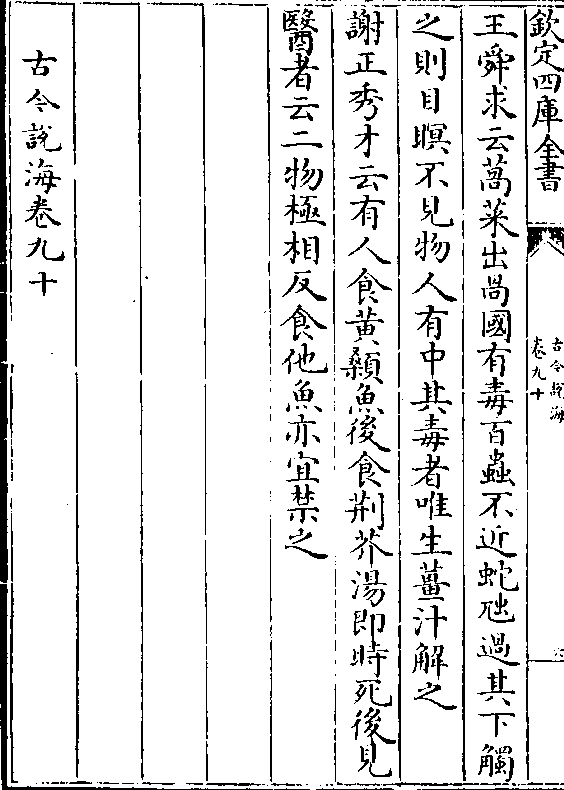 欽定四庫全書
古今說海
卷九十
王舜求云萵菜出咼國有毒百蟲不近蛇虺過其下觸
之則目瞑不見物人有中其毒者唯生薑汁解之
謝正秀才云有人食黃顙魚後食荆芥湯即時死後見
醫者云二物極相反食他魚亦宜禁之
古今說海卷九十